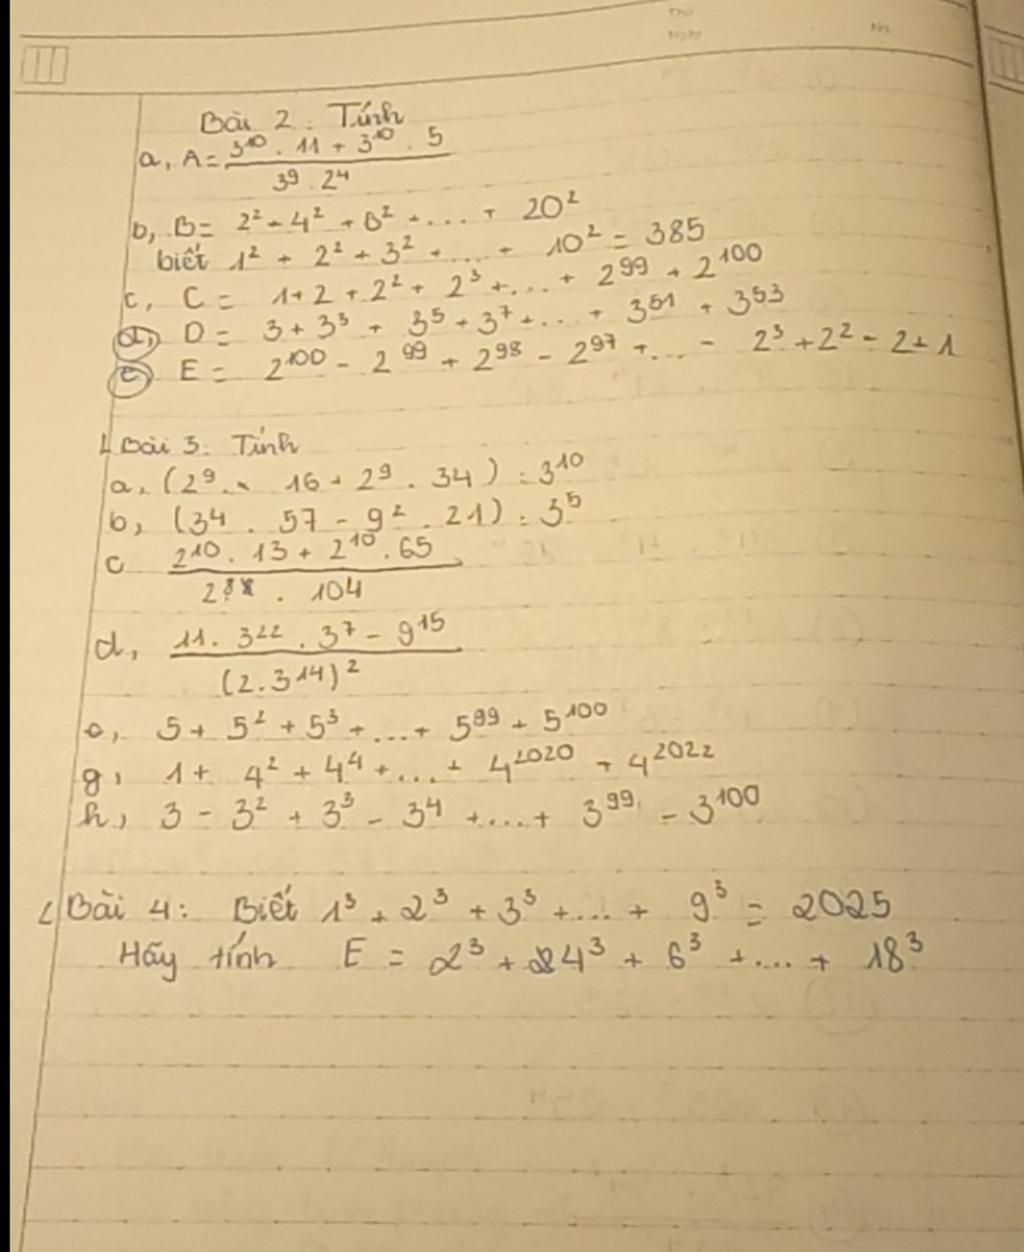 Thứ
Ngày
No.
Bài 2: Tính
a, A = (3^10 . 11 + 3^10 . 5) / (3^9 . 2^4)
b, B = 2^2 + 4^2 + 6^2 + ... + 20^2
biết 1^2 + 2^2 + 3^2 + ... + 10^2 = 385
c, C = 1 + 2 + 2^2 + 2^3 + ... + 2^99 + 2^100
d, D = 3 + 3^3 + 3^5 + 3^7 + ... + 3^51 + 3^53
e, E = 2^100 - 2^99 + 2^98 - 2^97 + ... - 2^3 + 2^2 - 2 + 1
Bài 3: Tính
a, (2^9 . 16 + 2^9 . 34) : 3^10
b, (3^4 . 57 - 9^2 . 21) : 3^5
c (2^10 . 13 + 2^10 . 65) / (2^8 . 104)
d, (11 . 3^22 . 3^7 - 9^15) / (2.3^14)^2
e, 5 + 5^2 + 5^3 + ... + 5^99 + 5^100
g, 1 + 4^2 + 4^4 + ... + 4^2020 + 4^2022
h, 3 - 3^2 + 3^3 - 3^4 + .... + 3^99 - 3^100
Bài 4: Biết 1^3 + 2^3 + 3^3 + .... + 9^3 = 2025
Hãy tính E = 2^3 + 4^3 + 6^3 + .... + 18^3